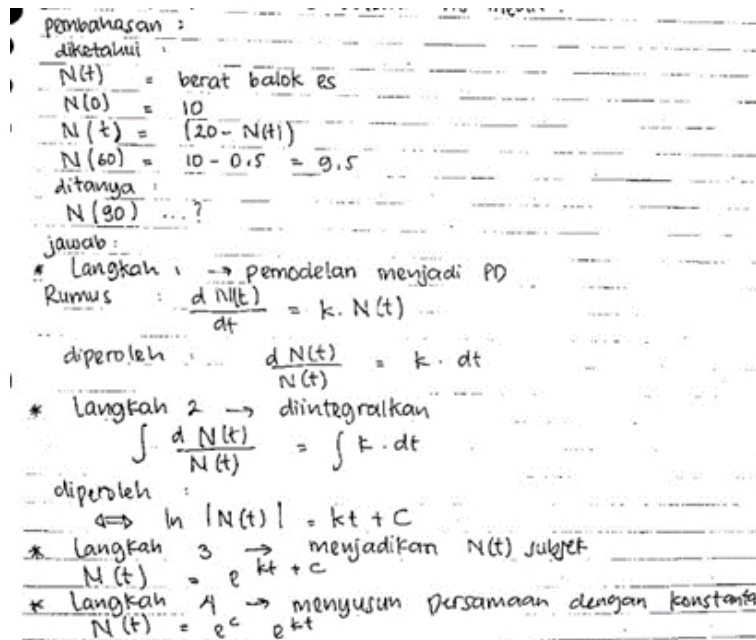 pembahasan :
diketahui :
N(t) = berat balok es
N(0) = 10
N(t) = (20 - N(t))
N(60) = 10 - 0.5 = 9.5
ditanya :
N(90) ...?
jawab :
* Langkah 1 → pemodelan menjadi PD
Rumus : d N(t) / dt = k. N(t)
diperoleh : d N(t) / N(t) = k . dt
* Langkah 2 → diintegralkan
∫ d N(t) / N(t) = ∫ k . dt
diperoleh :
⟺ ln |N(t)| = kt + C
* Langkah 3 → menjadikan N(t) subjek
N(t) = e^(kt + c)
* Langkah 4 → menyusun persamaan dengan konstanta
N(t) = e^c e^kt